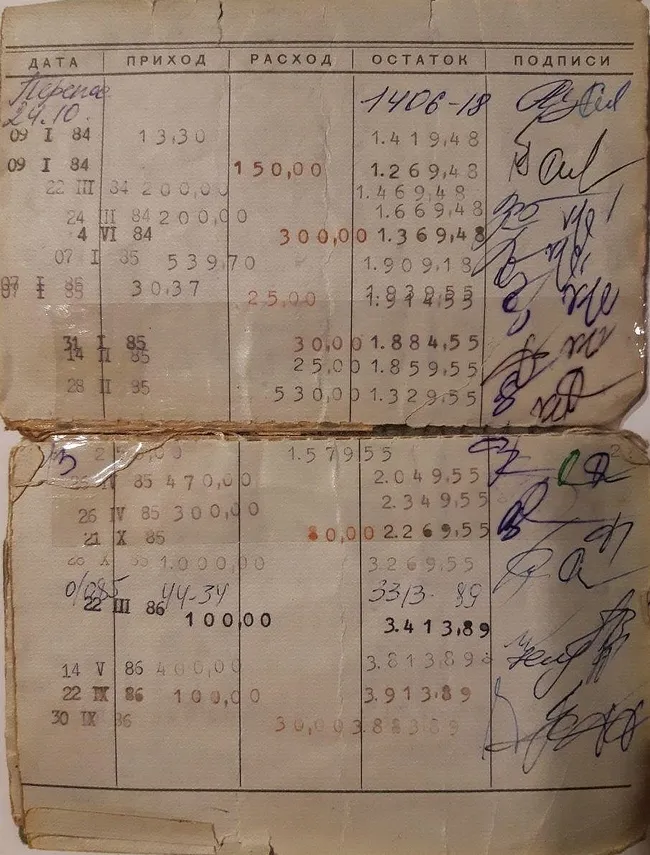 ДАТА ПРИХОД РАСХОД ОСТАТОК ПОДПИСИ
24.10. 1406-18
09 I 84 13,30 1.419,48
09 I 84 150,00 1.269,48
22 III 84 200,00 1.469,48
24 III 84 200,00 1.669,48
4 VI 84 300,00 1.369,48
07 I 85 539,70 1.909,18
07 I 85 30,37 1.939,55
25,00 1.914,55
31 I 85 30,00 1.884,55
14 II 85 25,00 1.859,55
28 II 85 530,00 1.329,55
1.579,55
IV 85 470,00 2.049,55
26 IV 85 300,00 2.349,55
21 X 85 80,00 2.269,55
1.000,00 3.269,55
44-34 3313- 89
22 III 86 100,00 3.413,89
14 V 86 400,00 3.813,89
22 IX 86 100,00 3.913,89
30 IX 86 30,00 3.883,89